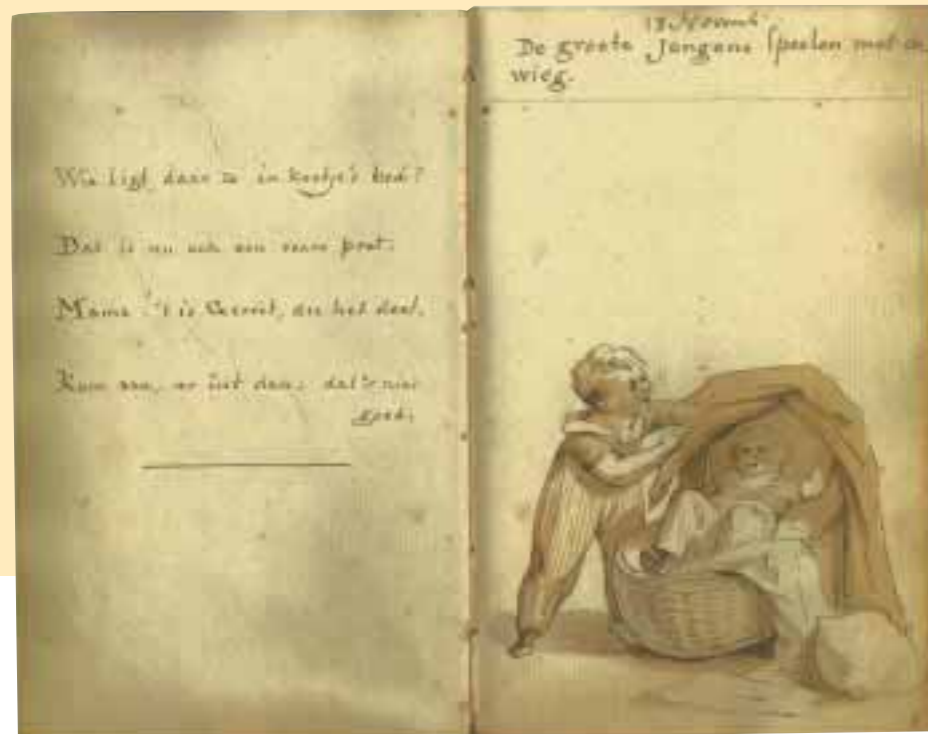 Wie ligt daar zo in Keetje's bed?
Dat is nu een pret.
Mama 't is Gerrit, die het doet.
Kom aan, er uit dan; dat's niet
goed.
13 Novemb.
De groote Jongens speelen met de
wieg.